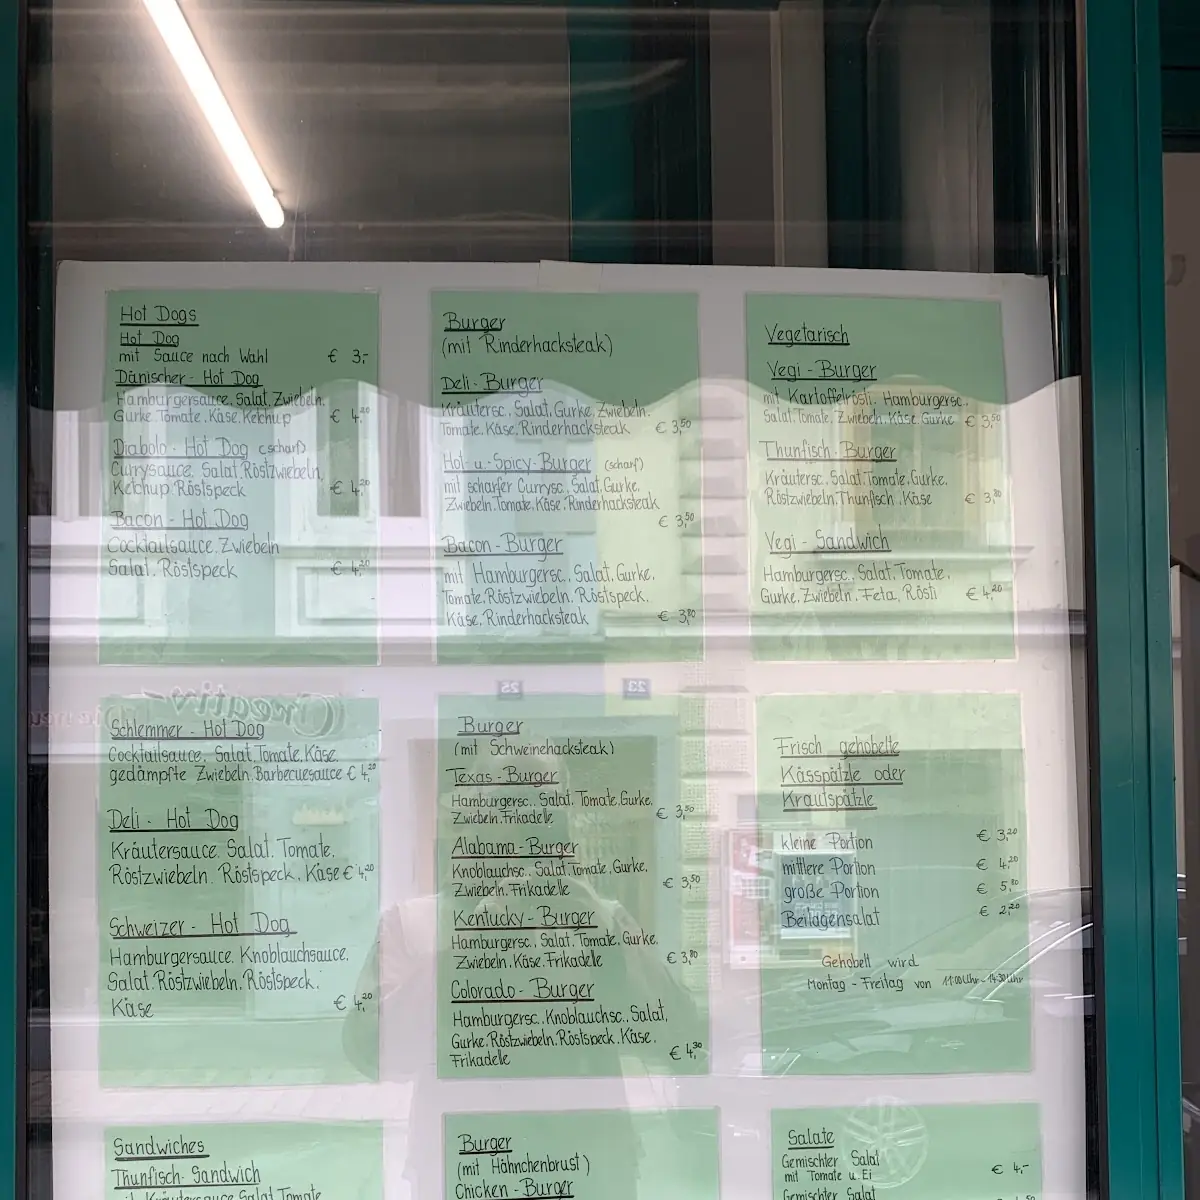 Hot Dogs
Hot Dog
mit Sauce nach Wahl € 3,-
Dänischer - Hot Dog
Hamburgersauce, Salat, Zwiebeln,
Gurke, Tomate, Käse, Ketchup € 4,20
Diabolo - Hot Dog (scharf)
Currysauce, Salat, Röstzwiebeln,
Ketchup, Röstspeck € 4,20
Bacon - Hot Dog
Cocktailsauce, Zwiebeln
Salat, Röstspeck € 4,20
Burger
(mit Rinderhacksteak)
Deli - Burger
Kräutersc., Salat, Gurke, Zwiebeln,
Tomate, Käse, Rinderhacksteak € 3,50
Hot u. Spicy - Burger (scharf)
mit scharfer Currysc., Salat, Gurke,
Zwiebeln, Tomate, Käse, Rinderhacksteak
€ 3,50
Bacon - Burger
mit Hamburgersc., Salat, Gurke,
Tomate, Röstzwiebeln, Röstspeck,
Käse, Rinderhacksteak € 3,80
Vegetarisch
Vegi - Burger
mit Kartoffelrösti, Hamburgersc.,
Salat, Tomate, Zwiebeln, Käse, Gurke € 3,50
Thunfisch - Burger
Kräutersc., Salat, Tomate, Gurke,
Röstzwiebeln, Thunfisch, Käse € 3,80
Vegi - Sandwich
Hamburgersc., Salat, Tomate,
Gurke, Zwiebeln, Feta, Rösti € 4,20
Schlemmer - Hot Dog
Cocktailsauce, Salat, Tomate, Käse,
gedämpfte Zwiebeln, Barbecuesauce € 4,20
Deli - Hot Dog
Kräutersauce, Salat, Tomate,
Röstzwiebeln, Röstspeck, Käse € 4,20
Schweizer - Hot Dog
Hamburgersauce, Knoblauchsauce,
Salat, Röstzwiebeln, Röstspeck,
Käse € 4,20
Burger
(mit Schweinehacksteak)
Texas - Burger
Hamburgersc., Salat, Tomate, Gurke,
Zwiebeln, Frikadelle € 3,50
Alabama - Burger
Knoblauchsc., Salat, Tomate, Gurke,
Zwiebeln, Frikadelle € 3,50
Kentucky - Burger
Hamburgersc., Salat, Tomate, Gurke,
Zwiebeln, Käse, Frikadelle € 3,80
Colorado - Burger
Hamburgersc., Knoblauchsc., Salat,
Gurke, Röstzwiebeln, Röstspeck, Käse,
Frikadelle € 4,30
Frisch gehobelte
Kässpätzle oder
Krautspätzle
kleine Portion € 3,20
mittlere Portion € 4,20
große Portion € 5,80
Beilagensalat € 2,20
Gehobelt wird
Montag - Freitag von 11:00 Uhr - 14:30 Uhr
Sandwiches
Thunfisch - Sandwich
mit Kräutersauce, Salat, Tomate
Burger
(mit Hähnchenbrust)
Chicken - Burger
Salate
Gemischter Salat
mit Tomate u. Ei € 4,-
Gemischter Salat